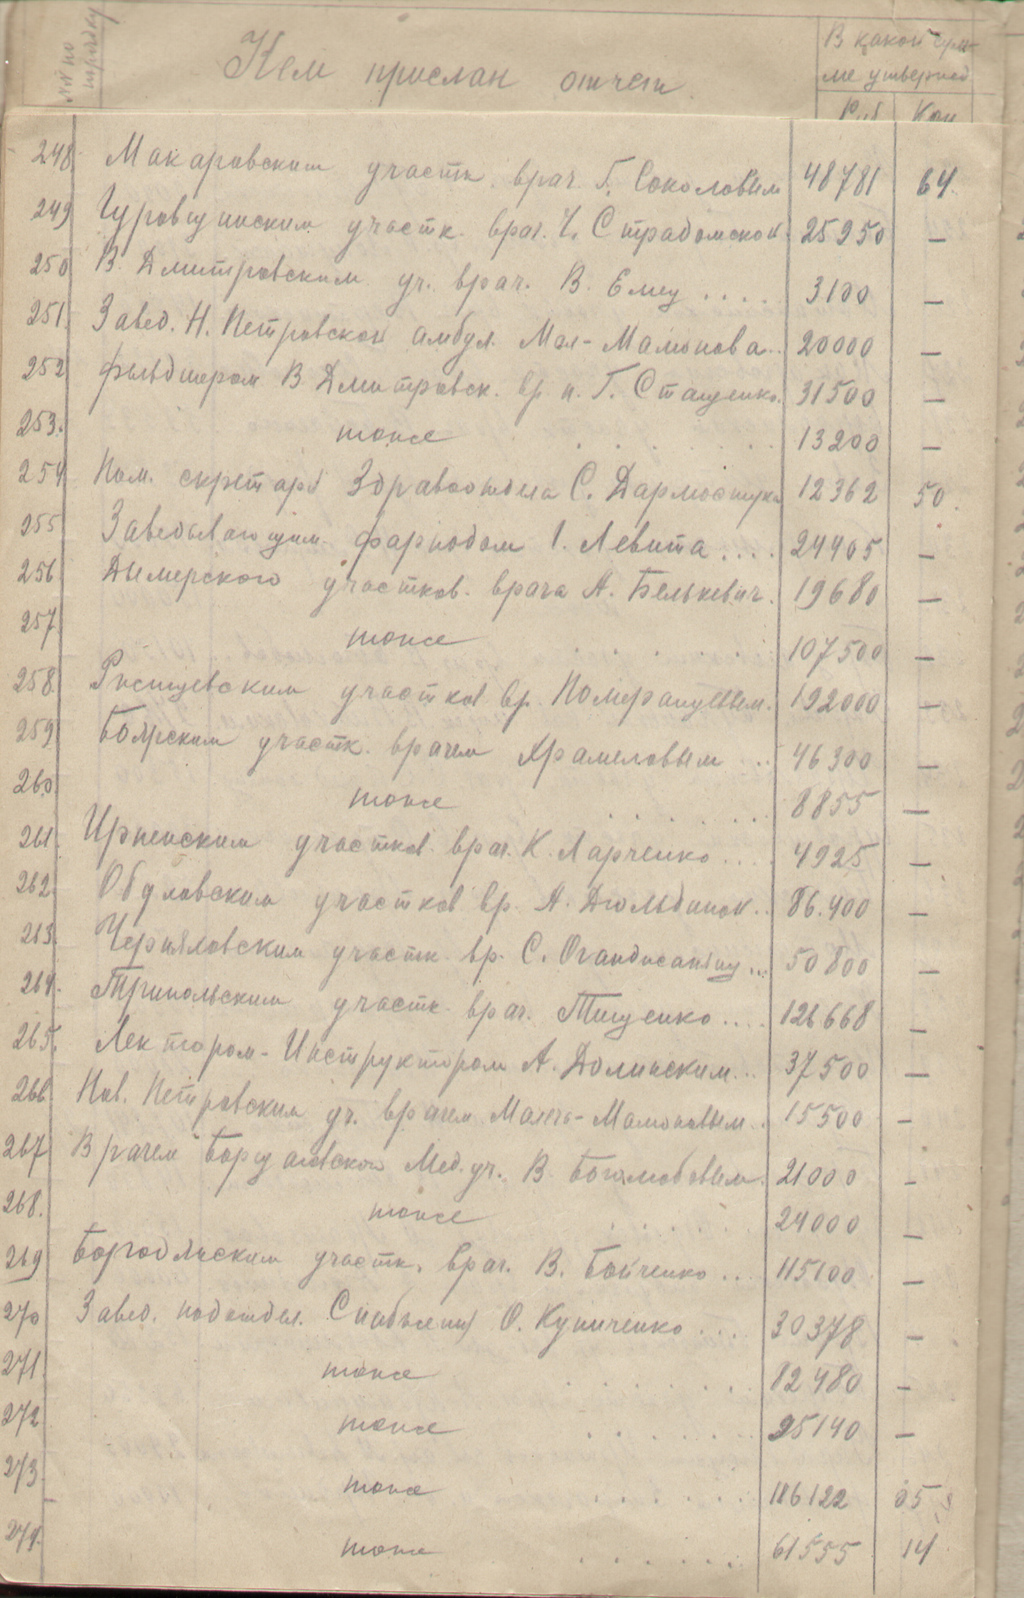 №№ по порядку
Кем прислан отчет
В какой сум-
ме утвержд.
Руб Коп
248. Макаровским участк. врач. Г. Соколовым 48781 64.
249 Гуровщинским участк. врач. Страдомской 25950 —
250 В. Дмитровским уч. врач. В. Емец .... 3100 —
251. Завед. Н. Петровской амбул. Мал-Мамонова.. 20000 —
252 фельдшером В Дмитровск. вр. п. Г. Стащенко. 31500 —
253. тоже ...... 13200 —
254 Пом. скретаря Здравоотдела С. Дармостука 12362 50.
255 Заведывающим фарподом І. Левита .... 24405 —
256 Дымерского участков. врача А. Белькевич. 19680 —
257 тоже ...... 107500 —
258 участков вр. Померанцевым. 192000 —
259 Боярским участк. врачем Храмеловым .. 46300 —
260. тоже ...... 8855 —
261. Ирпенским участков. врач. К. Ларченко .... 4925 —
262 Обуховским участков вр. А. .. 86.400 —
263. участк. вр. С. Оганджанянц ... 50800 —
264. Трипольским участк. врач. Тищенко .... 126668 —
265. Лектором-Инструктором А. Долинским... 37500 —
266 Нов. Петровским уч. врачем Мало-Мамоновым. 15500 —
267 Врачем Борщаговского Мед. уч. В. Боголюбовым. 21000 —
268. тоже ...... 24000 —
269 Бородянским участк. врач. В. Бойченко .. 115100 —
270 Завед. подотдел. Снабжения О. Куниченко .... 30378 —
271. тоже ...... 82480 —
272 тоже ...... 25140 —
273. тоже ...... 186122 05
274. тоже ...... 61555 14